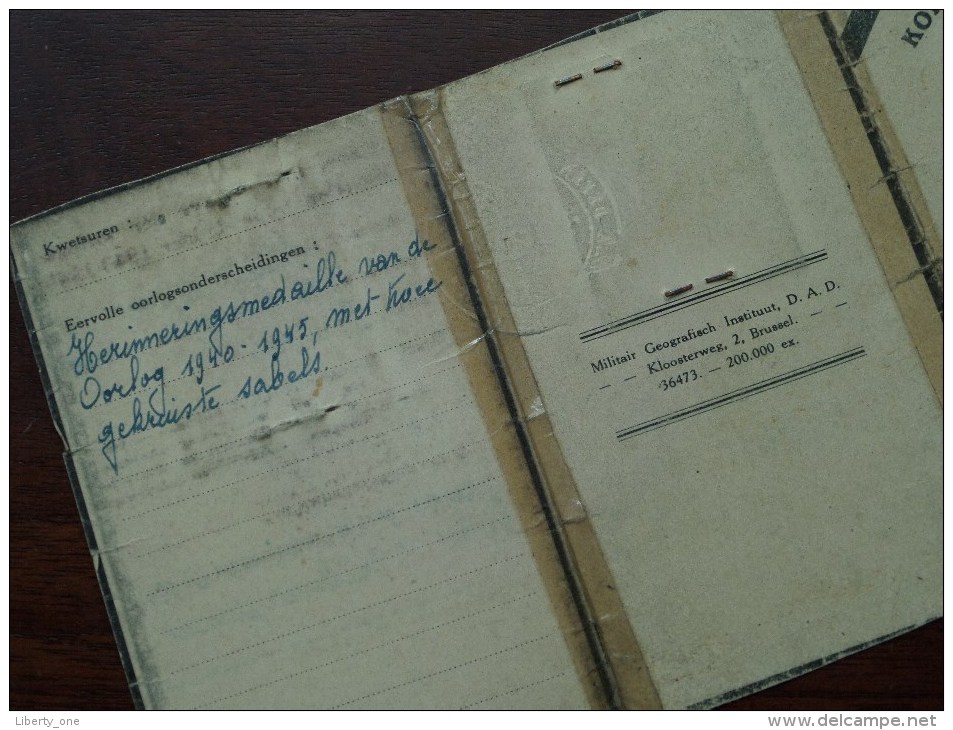 Kwetsuren :
Eervolle oorlogsonderscheidingen :
Herinneringsmedaille van de
Oorlog 1940-1945, met twee
gekruiste sabels.
Militair Geografisch Instituut, D. A. D.
— — Kloosterweg, 2, Brussel. — —
36473. — 200.000 ex.
Liberty_one
www.delcampe.net